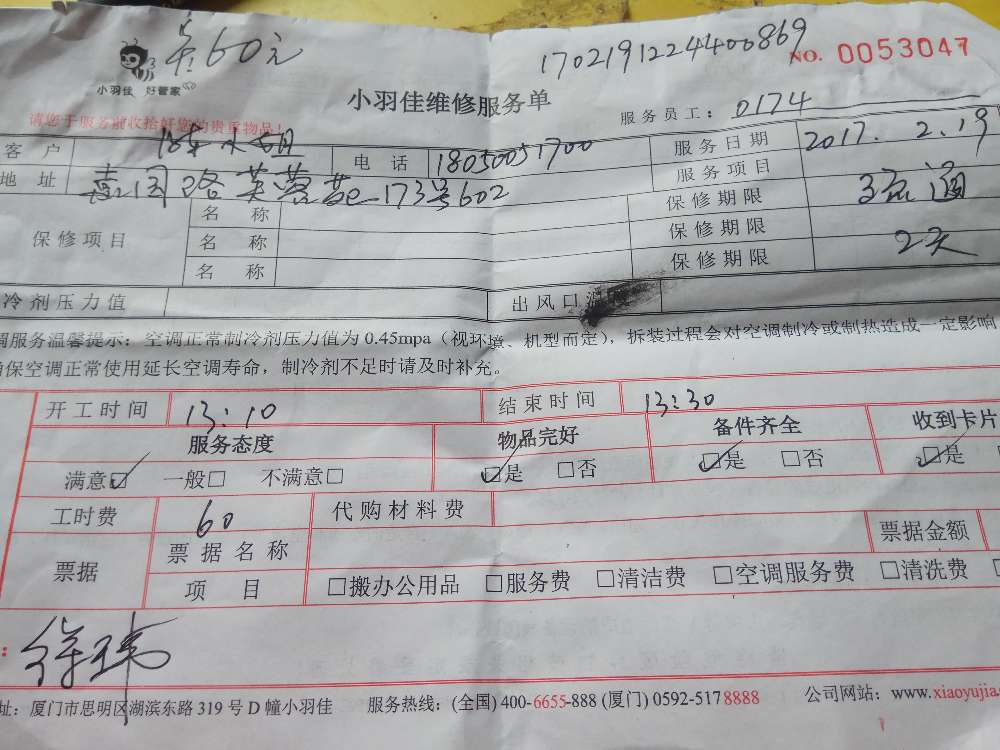 60元
1702191224400869
NO. 0053047
小羽佳 好管家
小羽佳维修服务单
服务员工: 0174
请您于服务前收拾好您的贵重物品!
客户 小姐 电话 18050051700 服务日期 2017.2.19
地址 嘉园路芙蓉苑173号602 服务项目 疏通
保修项目 名称 保修期限
名称 保修期限 2天
名称 保修期限
冷剂压力值 出风口
调服务温馨提示: 空调正常制冷剂压力值为 0.45mpa (视环境、机型而定), 拆装过程会对空调制冷或制热造成一定影响
确保空调正常使用延长空调寿命, 制冷剂不足时请及时补充。
开工时间 13:10 结束时间 13:30
服务态度 物品完好 备件齐全 收到卡片
满意☑ 一般□ 不满意□ ☑是 □否 ☑是 □否 ☑是
工时费 60 代购材料费
票据 票据名称 票据金额
项目 □搬办公用品 □服务费 □清洁费 □空调服务费 □清洗费
徐玮
址: 厦门市思明区湖滨东路 319 号 D 幢小羽佳 服务热线: (全国) 400-6655-888 (厦门) 0592-5178888 公司网站: www.xiaoyujia.